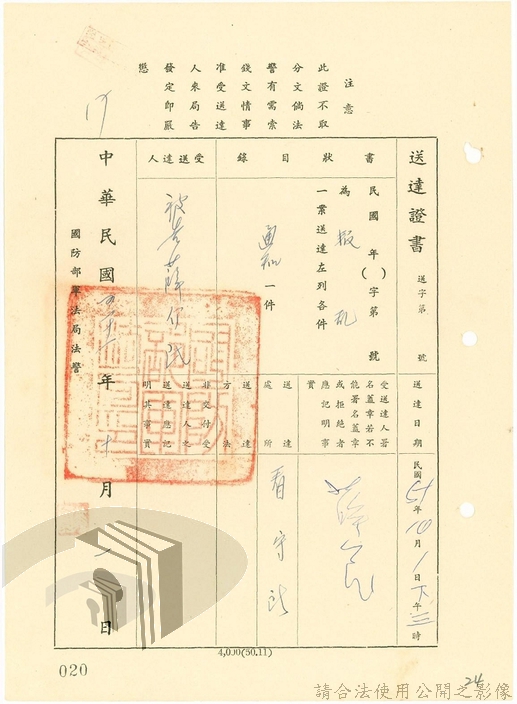 注意
此證不取
分文倘法
警有需索
錢文情事
准受送達
人來局告
發定即嚴
懲
送達證書
送字第 號
送達日期
民國 年10月1日下午三時
書狀
民國 年( )字第 號
為叛乱一案送達左列各件
受送達人著
名蓋章若不
能署名蓋章
或拒絕者
應記明事
實
目錄
通知 一件
送達處所
看守所
受送達人
被告薛介民
非交付受
送達人之
送達應記
明其事實
送達方法
中華民國五十一年十月一日
國防部軍法局法警
4,000(50.11)
020
24
請合法使用公開之影像